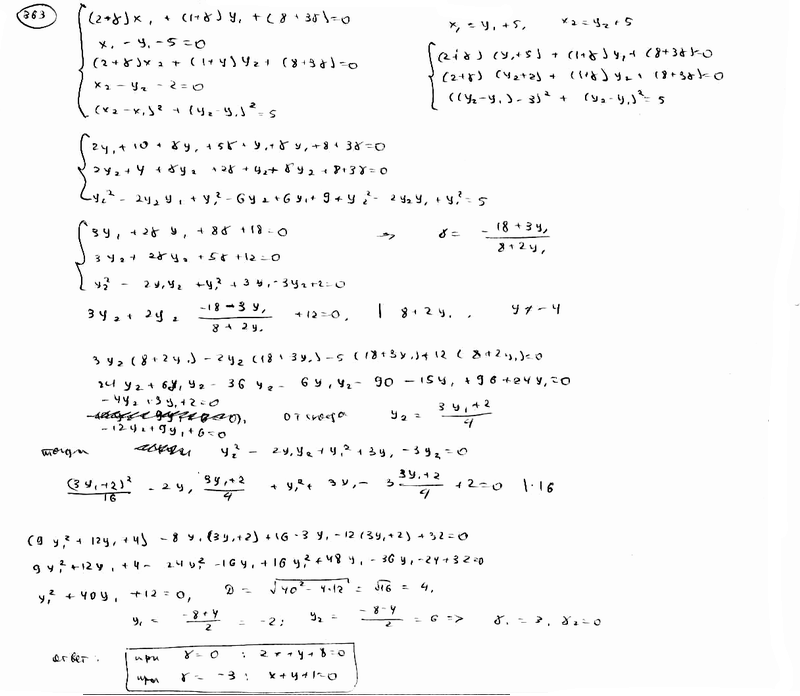 363
(2+γ)x₁ + (1+γ)y₁ + (8+3γ)=0
x₁ - y₁ - 5 = 0
(2+γ)x₂ + (1+γ)y₂ + (8+3γ)=0
x₂ - y₂ - 2 = 0
(x₂-x₁)² + (y₂-y₁)² = 5
x₁ = y₁+5, x₂ = y₂+5
(2+γ)(y₁+5) + (1+γ)y₁ + (8+3γ)=0
(2+γ)(y₂+2) + (1+γ)y₂ + (8+3γ)=0
((y₂-y₁)-3)² + (y₂-y₁)² = 5
2y₁+10+γy₁+5γ+y₁+γy₁+8+3γ=0
2y₂+4+γy₂+2γ+y₂+γy₂+8+3γ=0
y₂² - 2y₂y₁ + y₁² - 6y₂+6y₁+9+y₂² - 2y₂y₁+y₁² = 5
3y₁+2γy₁+8γ+18=0 => γ = -(18+3y₁)/(8+2y₁)
3y₂+2γy₂+5γ+12=0
y₂² - 2y₁y₂+y₁²+3y₁-3y₂+2=0
3y₂+2y₂ (-18-3y₁)/(8+2y₁) +12=0, | 8+2y₁, y≠-4
3y₂(8+2y₁)-2y₂(18+3y₁)-5(18+3y₁)+12(8+2y₁)=0
24y₂+6y₁y₂-36y₂-6y₁y₂-90-15y₁+96+24y₁=0
-4y₂+3y₁+2=0
-12y₂+9y₁+6=0
откуда y₂ = (3y₁+2)/4
тогда y₂² - 2y₁y₂+y₁²+3y₁-3y₂=0
(3y₁+2)²/16 - 2y₁ (3y₁+2)/4 + y₁²+3y₁-3 (3y₁+2)/4 +2=0 |·16
(9y₁²+12y₁+4)-8y₁(3y₁+2)+16·3y₁-12(3y₁+2)+32=0
9y₁²+12y₁+4-24y₁²-16y₁+16y₁²+48y₁-36y₁-24+32=0
y₁²+40y₁+12=0, D = √(40²-4·12) = √16 = 4,
y₁ = (-8+4)/2 = -2; y₂ = (-8-4)/2 = 6 => γ₁ = 3, γ₂=0
ответ: при γ=0 : 2x+y+8=0
при γ = -3 : x+y+1=0